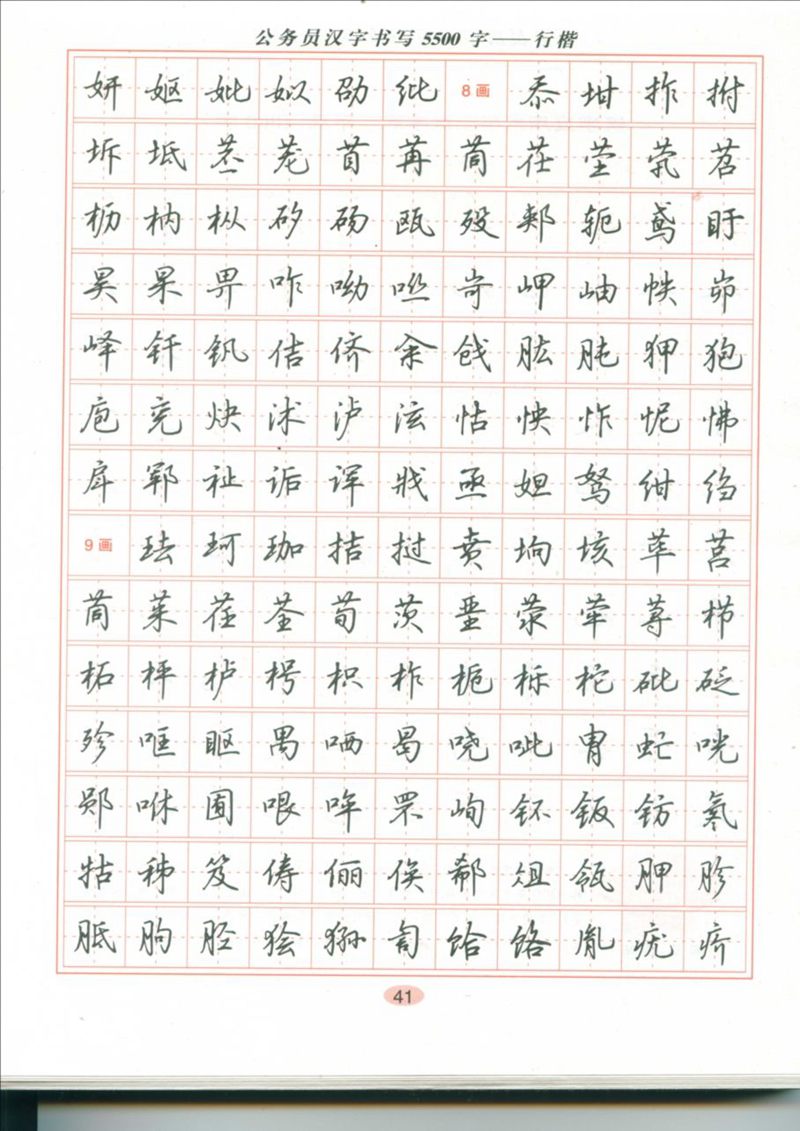 公务员汉字书写5500字——行楷
妍 妪 妣 姒 劭 纰 8画 忝 坩 拃 拊
坼 坻 茎 茏 苜 苒 苘 茌 茔 茕 茗
枥 枘 枞 矽 砀 瓯 殁 郏 轭 鸢 盱
昊 杲 畀 咋 呦 咝 岢 岬 岫 帙 峁
峄 钎 钒 佶 侪 籴 戗 肱 肫 狎 狍
庖 兖 炔 沭 泸 泫 怙 怏 怍 怩 怫
戽 郓 祉 诟 诨 戕 亟 妲 驽 绀 绉
9画 珐 珂 珈 拮 挝 贲 垧 垓 荜 莒
茼 莱 荏 荃 荀 茨 垩 荥 荦 荨 栉
柘 枰 栌 枵 枳 柞 栀 栎 柁 砒 砭
殄 哐 眍 禺 哂 曷 哓 呲 胄 虻 咣
郧 咻 囿 哏 哞 罘 峋 钚 钣 钫 氡
牯 秭 笈 俦 俪 俟 郗 俎 瓴 胛 胗
胝 朐 胫 狯 狲 訇 饸 饹 胤 疣 疥
41